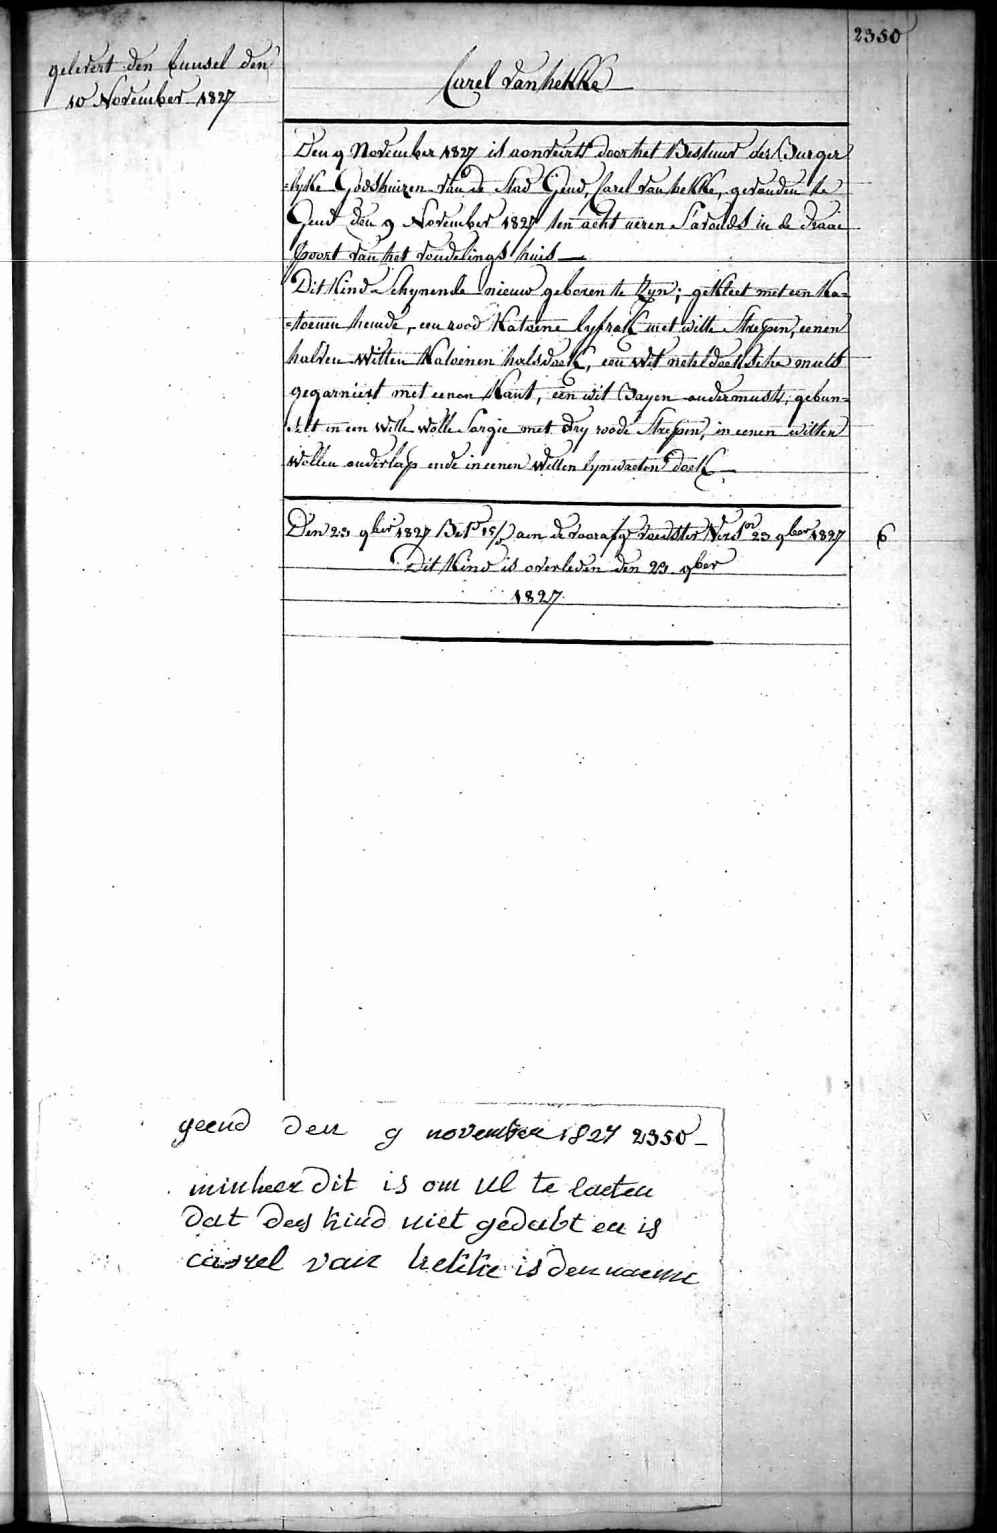 2350
gelevert den bunsel den
10 November 1827
Carel van hekke
Den 9 November 1827 is aenveird door het Bestuur der Burger
=lyke Godshuizen van de Stad Gend, Carel van hekke, gevonden te
Gend den 9 November 1827 ten acht ueren S'avonds in de draai
poort van het vondelings huis
Dit Kind Schynende nieuw geboren te Zyn; gekleet met een Ka=
=toenen hemde, een rood Katoene lyfrak met witte Strepen, eenen
halven witten Katoenen halsdoek, een wit neteldoeksche muts
gegarniert met eenen Kant, een wit Bayen ondermuts; gebun=
delt in een witte wolle Sargie met dry roode Strepen, in eenen witten
wollen onderlap ende in eenen witten lynwaeten doek
Den 23 9ber 1827 aen de voorafge voedster 23 9ber 1827
6
Dit Kind is overleden den 23 9ber
1827
geend den 9 november 1827 2350
minheer dit is om Ul te laeten
dat dees kind niet gedobt en is
carrel van hekke is den naeme